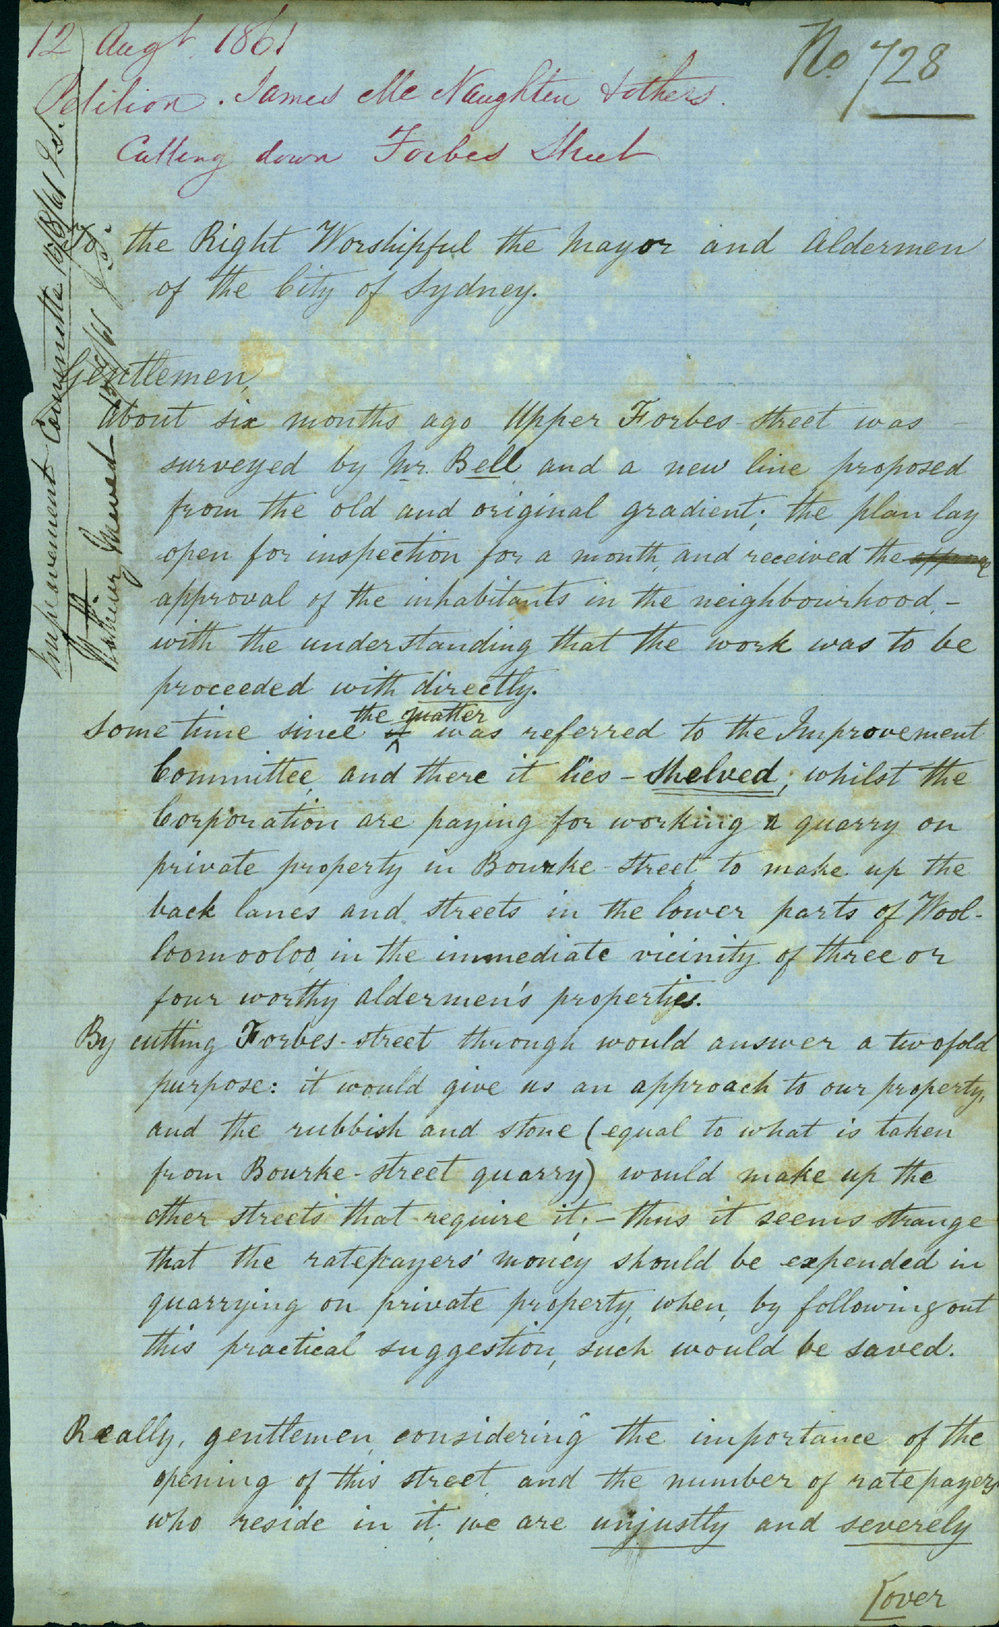 12 Augt 1861
No 728
Petition. James Mc Naughten & others.
Cutting down Forbes Street
Improvement Committee 16/8/61
To the Right Worshipful the Mayor and Aldermen
of the City of Sydney.
Gentlemen,
About six months ago Upper Forbes-street was
surveyed by Mr. Bell and a new line proposed
from the old and original gradient; the plan lay
open for inspection for a month, and received the
approval of the inhabitants in the neighbourhood,-
with the understanding that the work was to be
proceeded with directly.
Some time since the matter was referred to the Improvement
Committee, and there it lies - shelved; whilst the
Corporation are paying for working a quarry on
private property in Bourke-street, to make up the
back lanes and streets in the lower parts of Wool-
loomooloo, in the immediate vicinity of three or
four worthy aldermen's properties.
By cutting Forbes-street through would answer a twofold
purpose: it would give us an approach to our property,
and the rubbish and stone (equal to what is taken
from Bourke-street quarry) would make up the
other streets that require it; - thus it seems strange
that the ratepayers' money should be expended in
quarrying on private property, when, by following out
this practical suggestion, such would be saved.
Really, gentlemen, considering the importance of the
opening of this street, and the number of ratepayers
who reside in it, we are unjustly and severely
[over